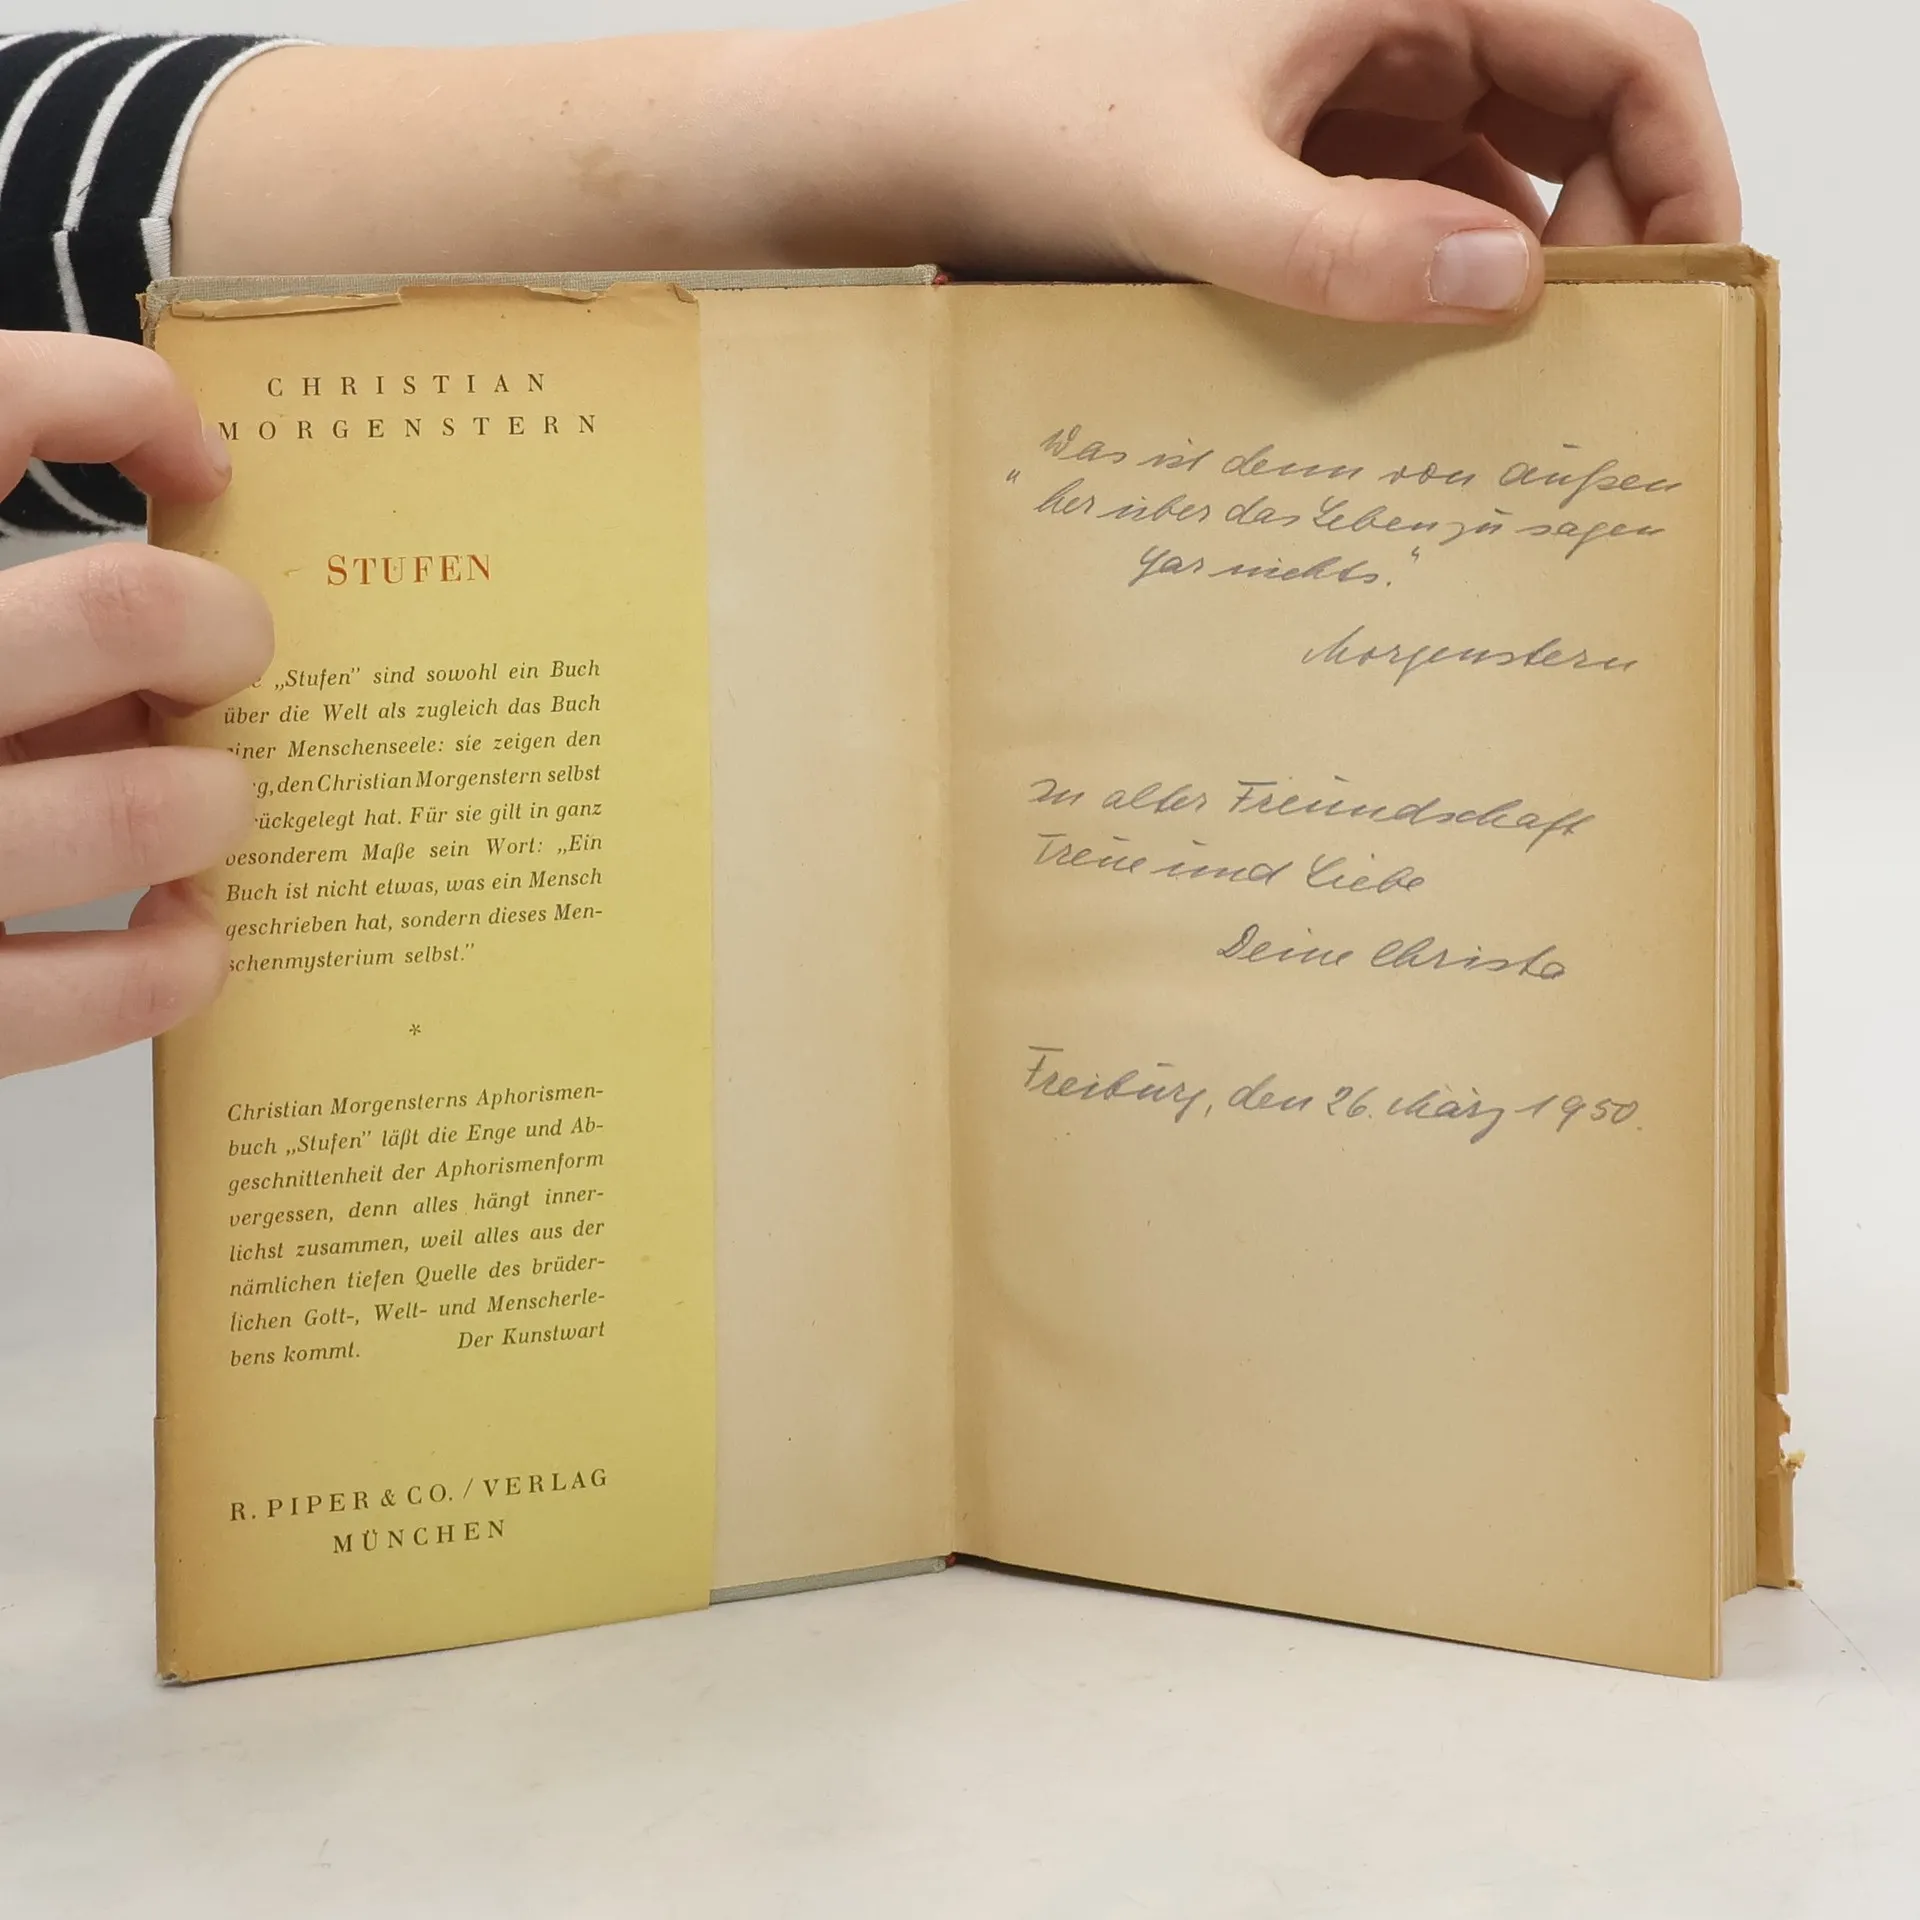 CHRISTIAN
MORGENSTERN
STUFEN
„Stufen” sind sowohl ein Buch
über die Welt als zugleich das Buch
einer Menschenseele: sie zeigen den
den Christian Morgenstern selbst
rückgelegt hat. Für sie gilt in ganz
besonderem Maße sein Wort: „Ein
Buch ist nicht etwas, was ein Mensch
geschrieben hat, sondern dieses Men-
schenmysterium selbst.”
*
Christian Morgensterns Aphorismen-
buch „Stufen” läßt die Enge und Ab-
geschnittenheit der Aphorismenform
vergessen, denn alles hängt inner-
lichst zusammen, weil alles aus der
nämlichen tiefen Quelle des brüder-
lichen Gott-, Welt- und Menscherle-
bens kommt. Der Kunstwart
R. PIPER & CO. / VERLAG
MÜNCHEN
„Was ist denn von außen
her über das Leben zu sagen
Gar nichts.“
Morgenstern
In alter Freundschaft
Treue und Liebe
Deine Christa
Freiburg, den 26. März 1950.